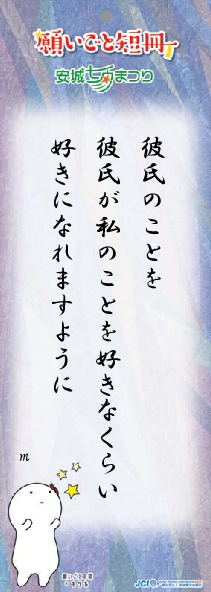 願いごと短冊
安城七夕まつり
彼氏のことを
彼氏が私のことを好きなくらい
好きになれますように
m
願いごと短冊
JCI